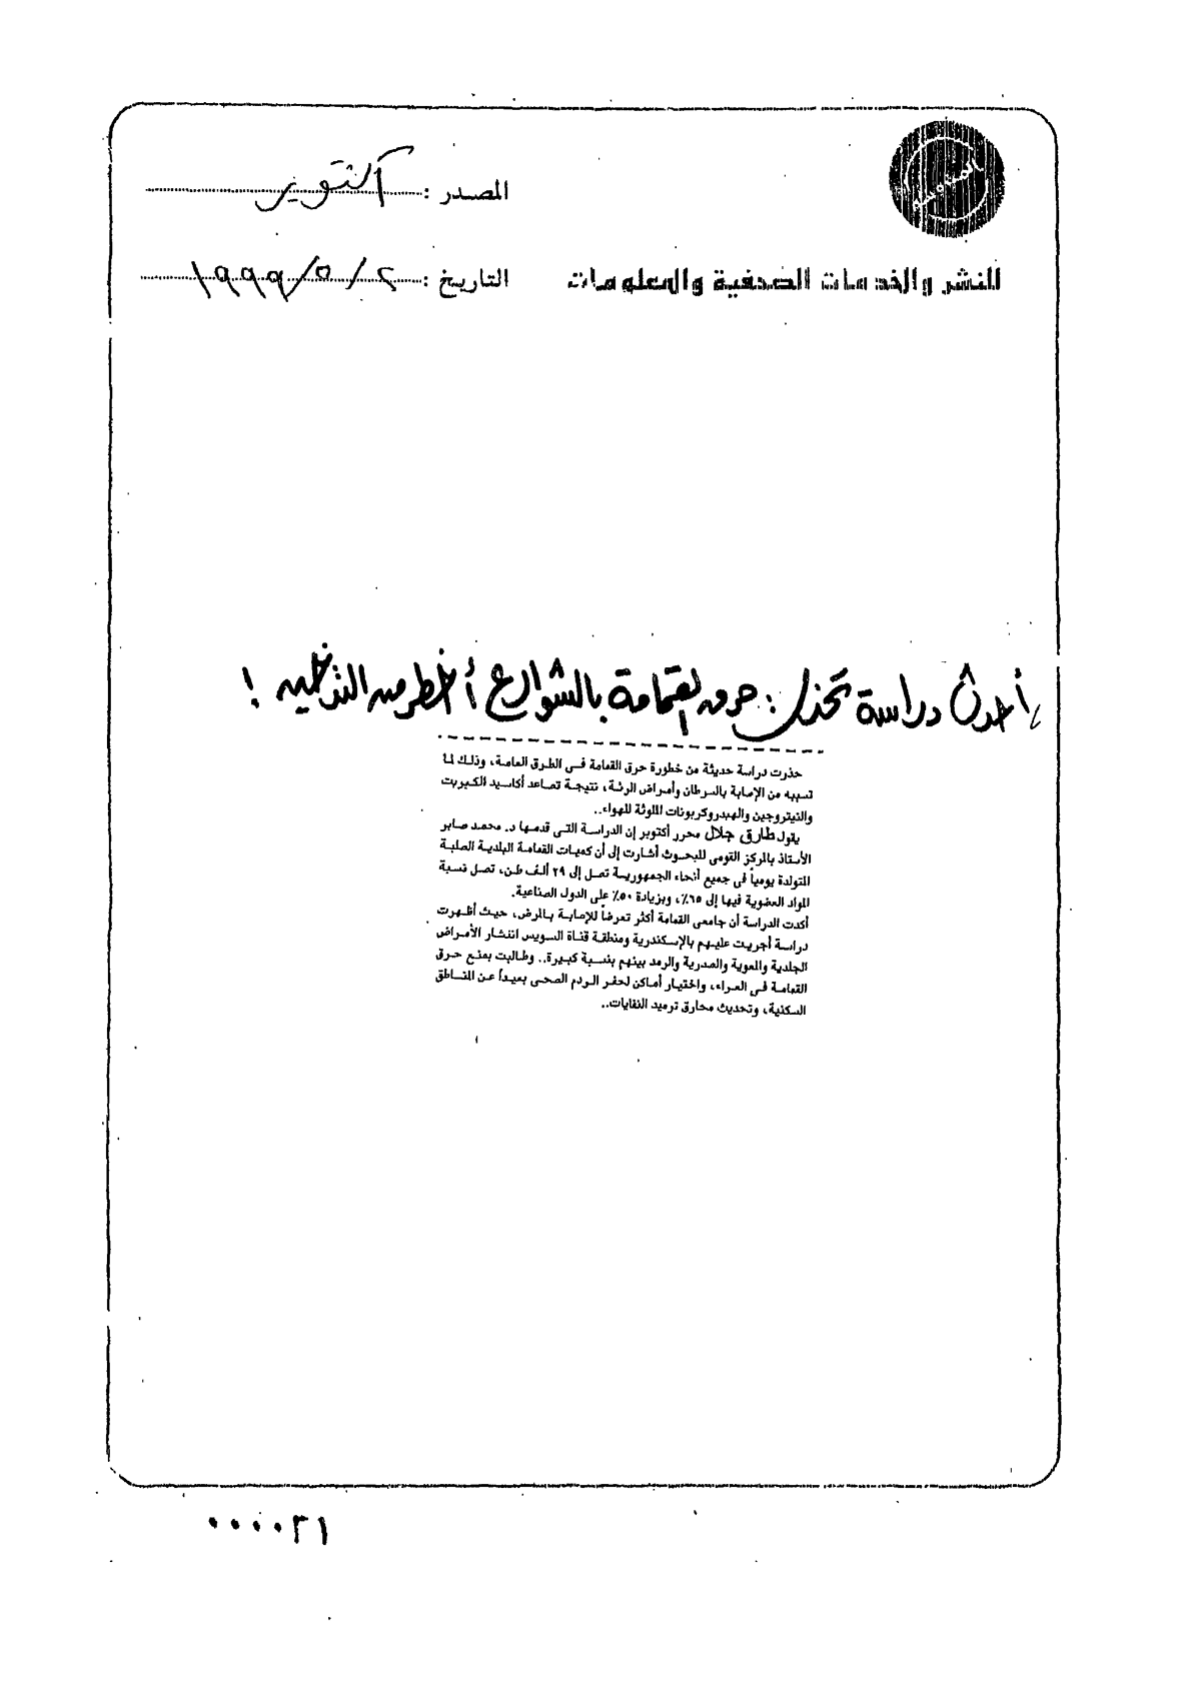 المصدر : أكتوبر
للنشر والخدمات الصحفية والمعلومات
التاريخ : ٢ / ٥ / ١٩٩٩
أحدث دراسة تحذر : حرق القمامة بالشوارع أخطر من التدخين !
حذرت دراسة حديثة من خطورة حرق القمامة فى الطرق العامة، وذلك لما
تسببه من الإصابة بالسرطان وأمراض الرئة، نتيجة تصاعد أكاسيد الكبريت
والنيتروجين والهيدروكربونات الملوثة للهواء..
يقول طارق جلال محرر أكتوبر إن الدراسة التى قدمها د. محمد صابر
الأستاذ بالمركز القومى للبحوث أشارت إلى أن كميات القمامة البلدية الصلبة
المتولدة يومياً فى جميع أنحاء الجمهورية تصل إلى ٢٩ ألف طن، تصل نسبة
المواد العضوية فيها إلى ٦٥٪، وبزيادة ٥٠٪ على الدول الصناعية.
أكدت الدراسة أن جامعى القمامة أكثر تعرضاً للإصابة بالمرض، حيث أظهرت
دراسة أجريت عليهم بالإسكندرية ومنطقة قناة السويس انتشار الأمراض
الجلدية والمعوية والصدرية والرمد بينهم بنسبة كبيرة.. وطالبت بمنع حرق
القمامة فى العراء، واختيار أماكن لحفر الردم الصحى بعيداً عن المناطق
السكنية، وتحديث محارق ترميد النفايات..
٠٠٠٠٢١